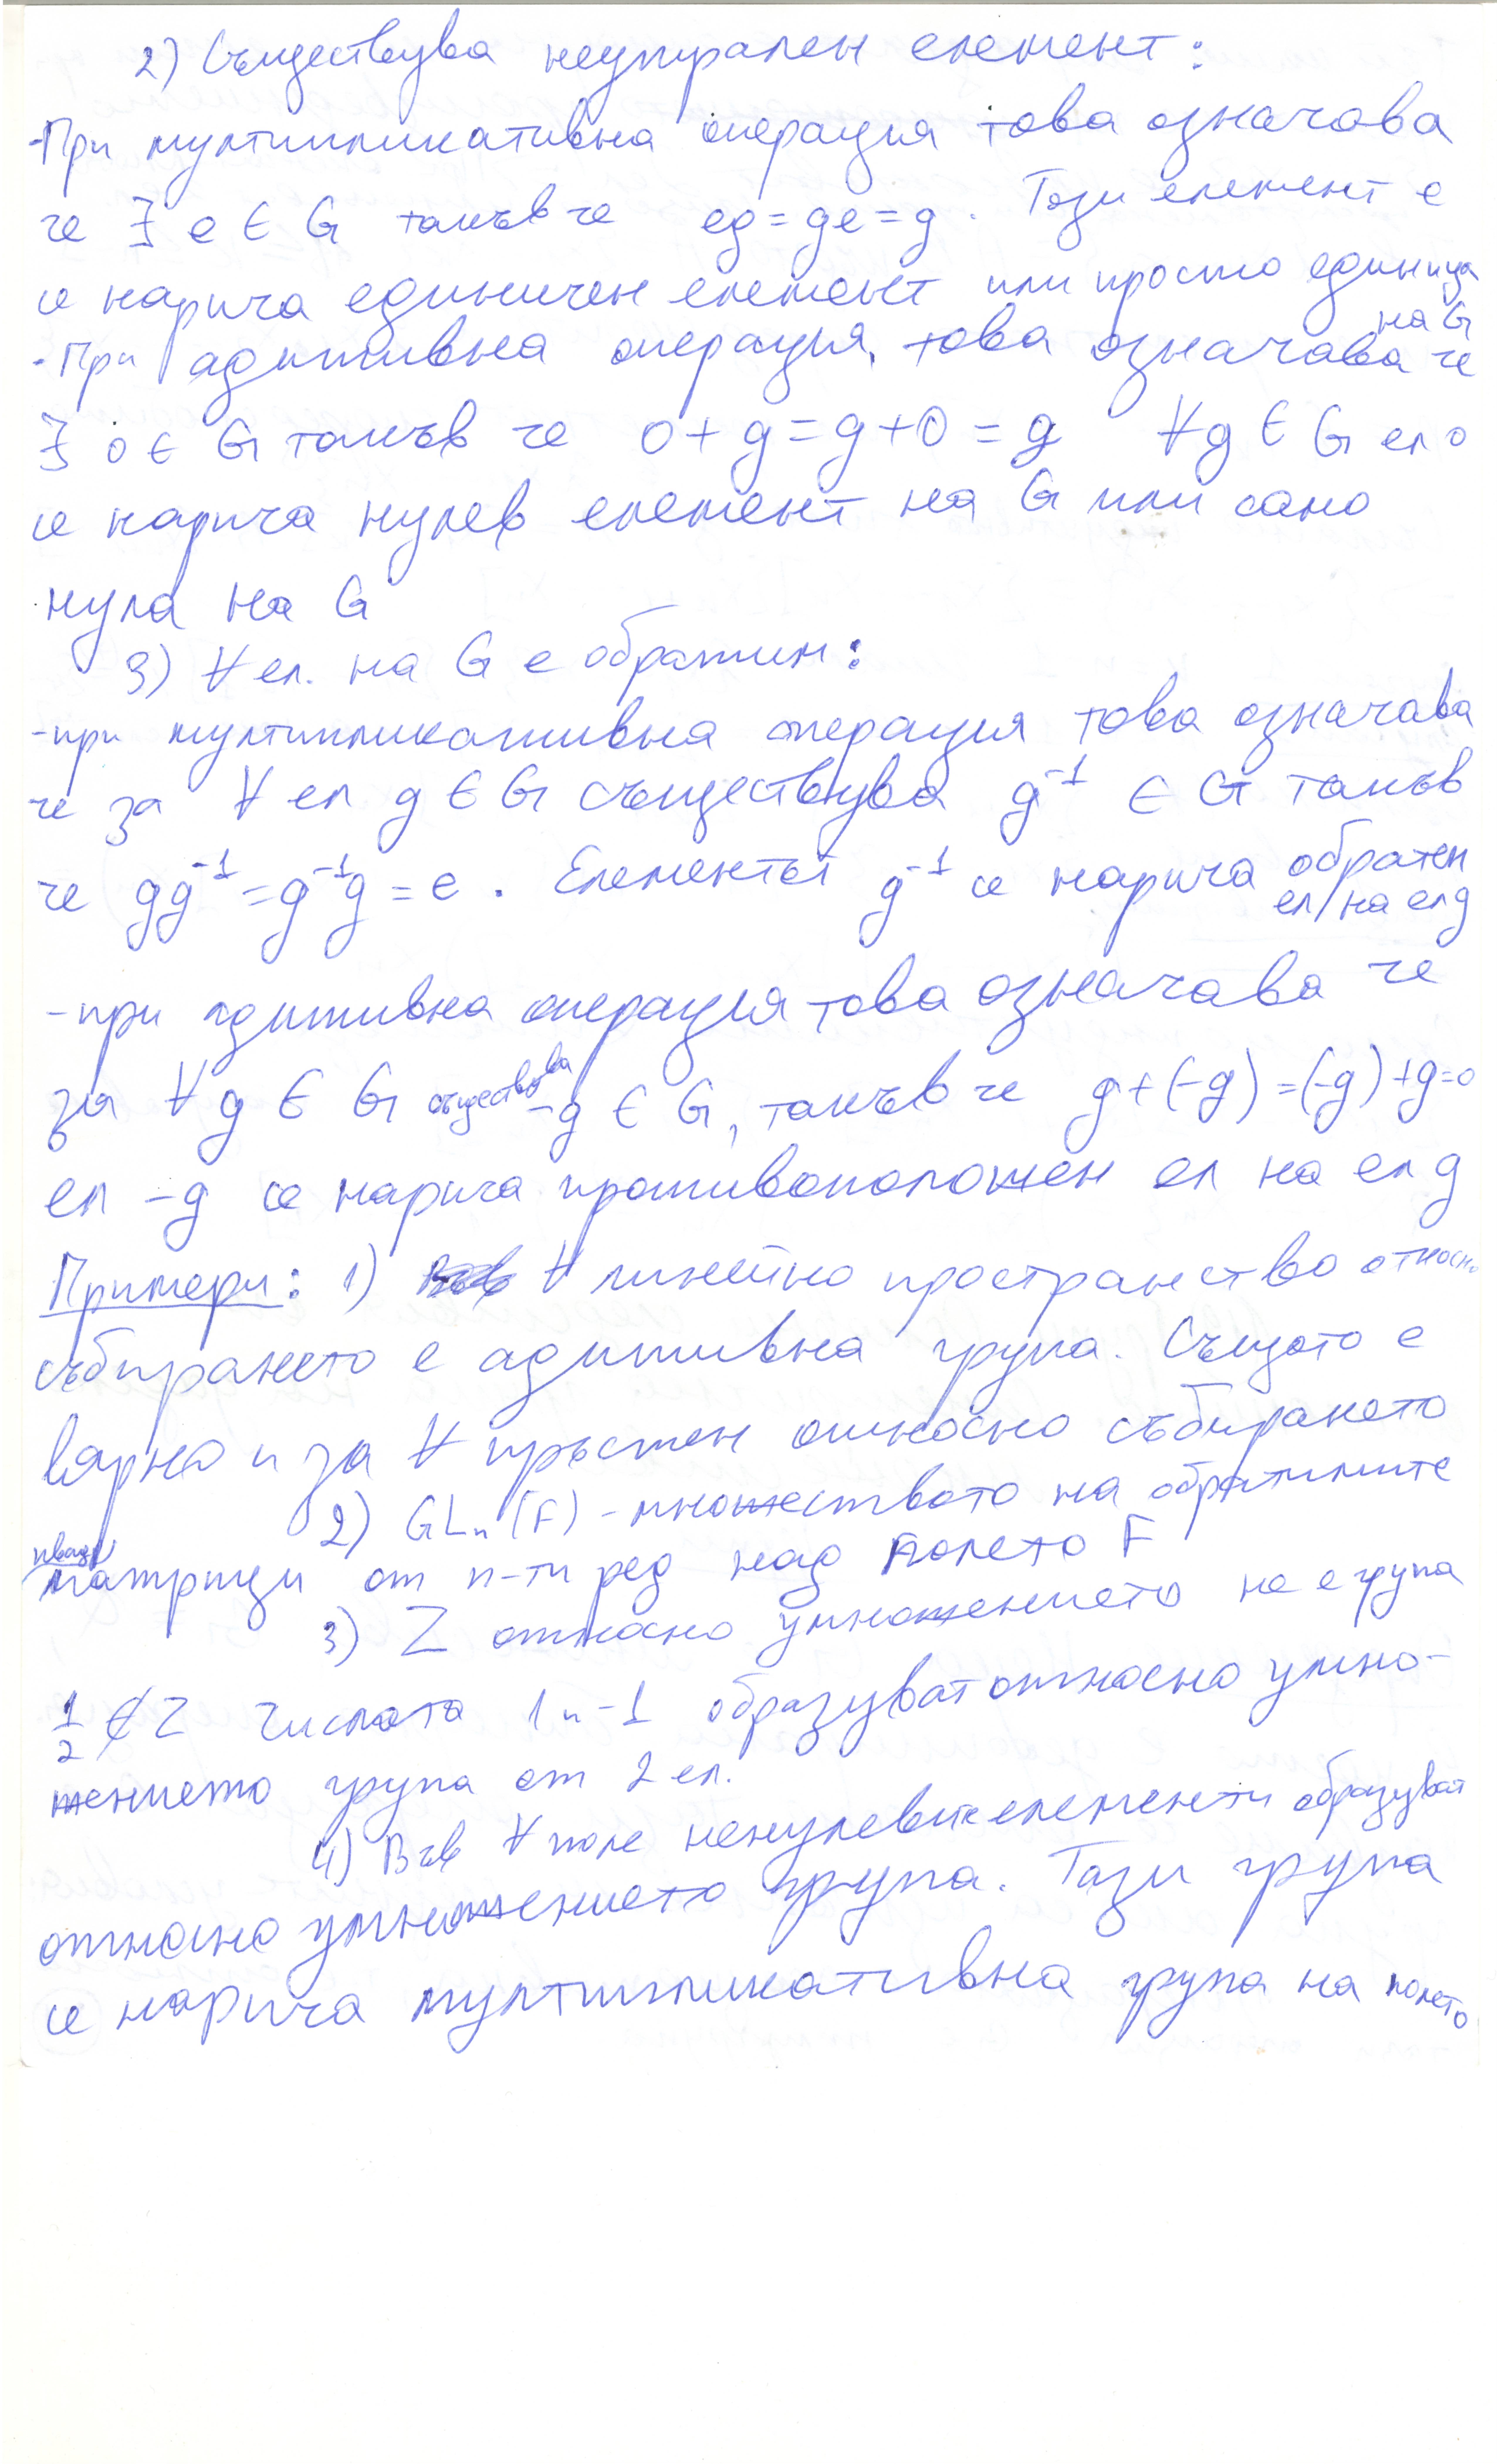 2) Съществува неутрален елемент:
-При мултипликативна операция това означава
че ∃ e ∈ G такъв че eg = ge = g. Този елемент e
се нарича единичен елемент или просто единица
на G
-При адитивна операция, това означава че
∃ 0 ∈ G такъв че 0 + g = g + 0 = g ∀g ∈ G ел 0
се нарича нулев елемент на G или само
нула на G
3) ∀ ел. на G е обратим:
-при мултипликативна операция това означава
че за ∀ ел g ∈ G съществува g⁻¹ ∈ G такъв
че gg⁻¹ = g⁻¹g = e. Елементът g⁻¹ се нарича обратен
ел на ел g
-при адитивна операция това означава че
за ∀ g ∈ G съществува -g ∈ G, такъв че g + (-g) = (-g) + g = 0
ел -g се нарича противоположен ел на ел g
Примери: 1) ∀ линейно пространство относно
събирането е адитивна група. Същото е
вярно и за ∀ пръстен относно събирането
2) GLₙ(F) - множеството на обратимите
квадр
матрици от n-ти ред над полето F
3) Z относно умножението не е група
1/2 ∉ Z числата 1 и -1 образуват относно умно-
жението група от 2 ел.
4) Във ∀ поле ненулевите елементи образуват
относно умножението група. Тази група
се нарича мултипликативна група на полето